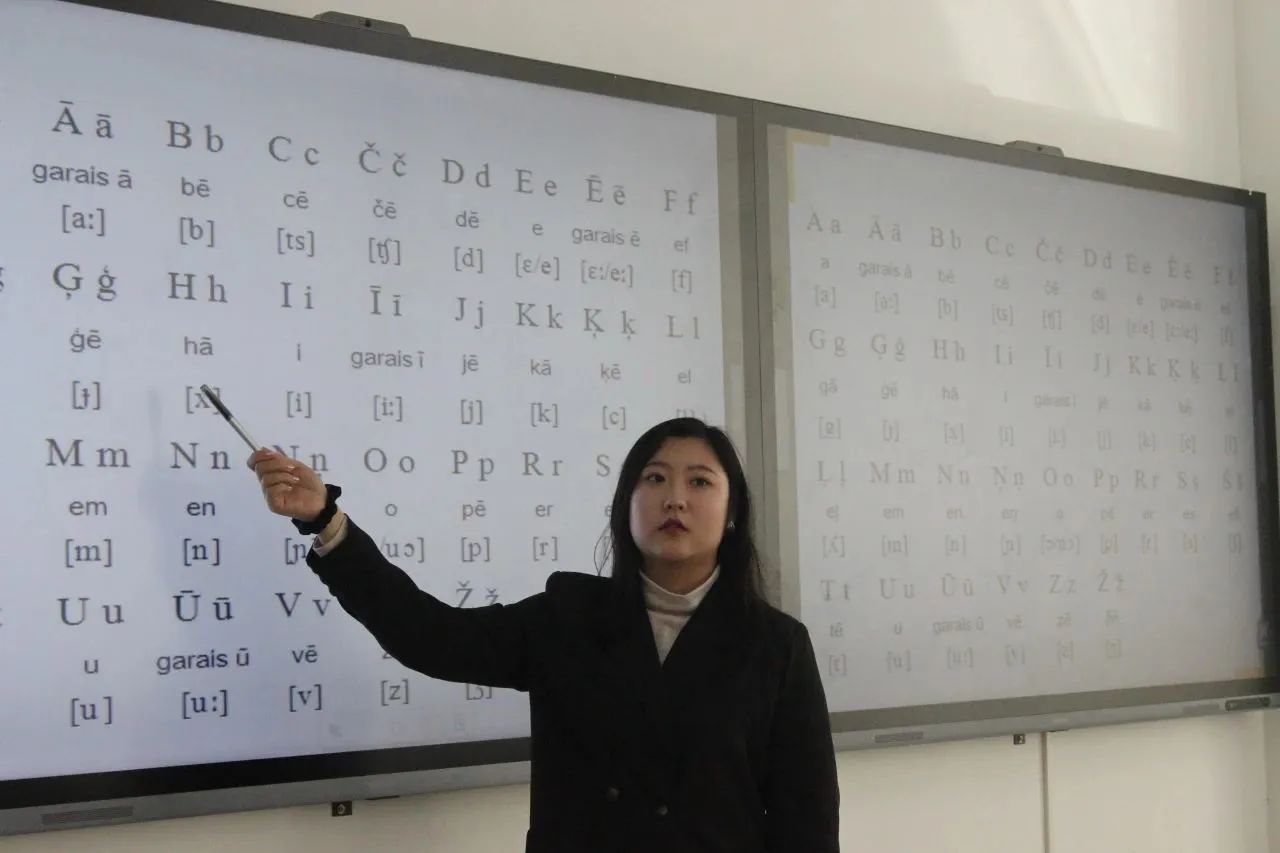 Ā ā B b C c Č č D d E e Ē ē F f
garais ā bē cē čē dē e garais ē ef
[aː] [b] [ts] [ʧ] [d] [ɛ/e] [ɛː/eː] [f]
Ģ ģ H h I i Ī ī J j K k Ķ ķ L l
ģē hā i garais ī jē kā ķē el
[ɟ] [x] [i] [iː] [j] [k] [c]
M m N n Ņ ņ O o P p R r S
em en o pē er
[m] [n] [ɲ /uɔ] [p] [r]
U u Ū ū V v Ž ž
u garais ū vē
[u] [uː] [v] [z] [ʒ]
A a Ā ā B b C c Č č D d E e Ē ē F f
a garais ā bē cē čē dē e garais ē ef
[a] [aː] [b] [ts] [ʧ] [d] [ɛ/e] [ɛː/eː] [f]
G g Ģ ģ H h I i Ī ī J j K k Ķ ķ L l
gā ģē hā i garais ī jē kā ķē el
[g] [ɟ] [x] [i] [iː] [j] [k] [c] [l]
Ļ ļ M m N n Ņ ņ O o P p R r S s Š š
eļ em en eņ o pē er es eš
[ʎ] [m] [n] [ɲ] [ɔ/uɔ] [p] [r] [s] [ʃ]
T t U u Ū ū V v Z z Ž ž
tē u garais ū vē zē žē
[t] [u] [uː] [v] [z] [ʒ]